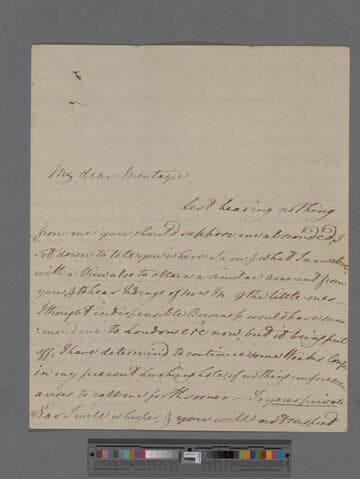 My dear Montague
Lest hearing nothing
from me you should suppose me absconded I
sit down to tell you where I am & what I am about,
with a View also to obtain a similar account from
you, & to hear tidings of Mrs M. & the little ones —
I thought indispensible Business would have sum
mond me to London ere now, but it being put
off, I have determind to continue some Weeks longer
in my present lurking hole, if nothing unforeseen
arises to call me forth sooner — To your private
Ear I will whisper & you will not suspect